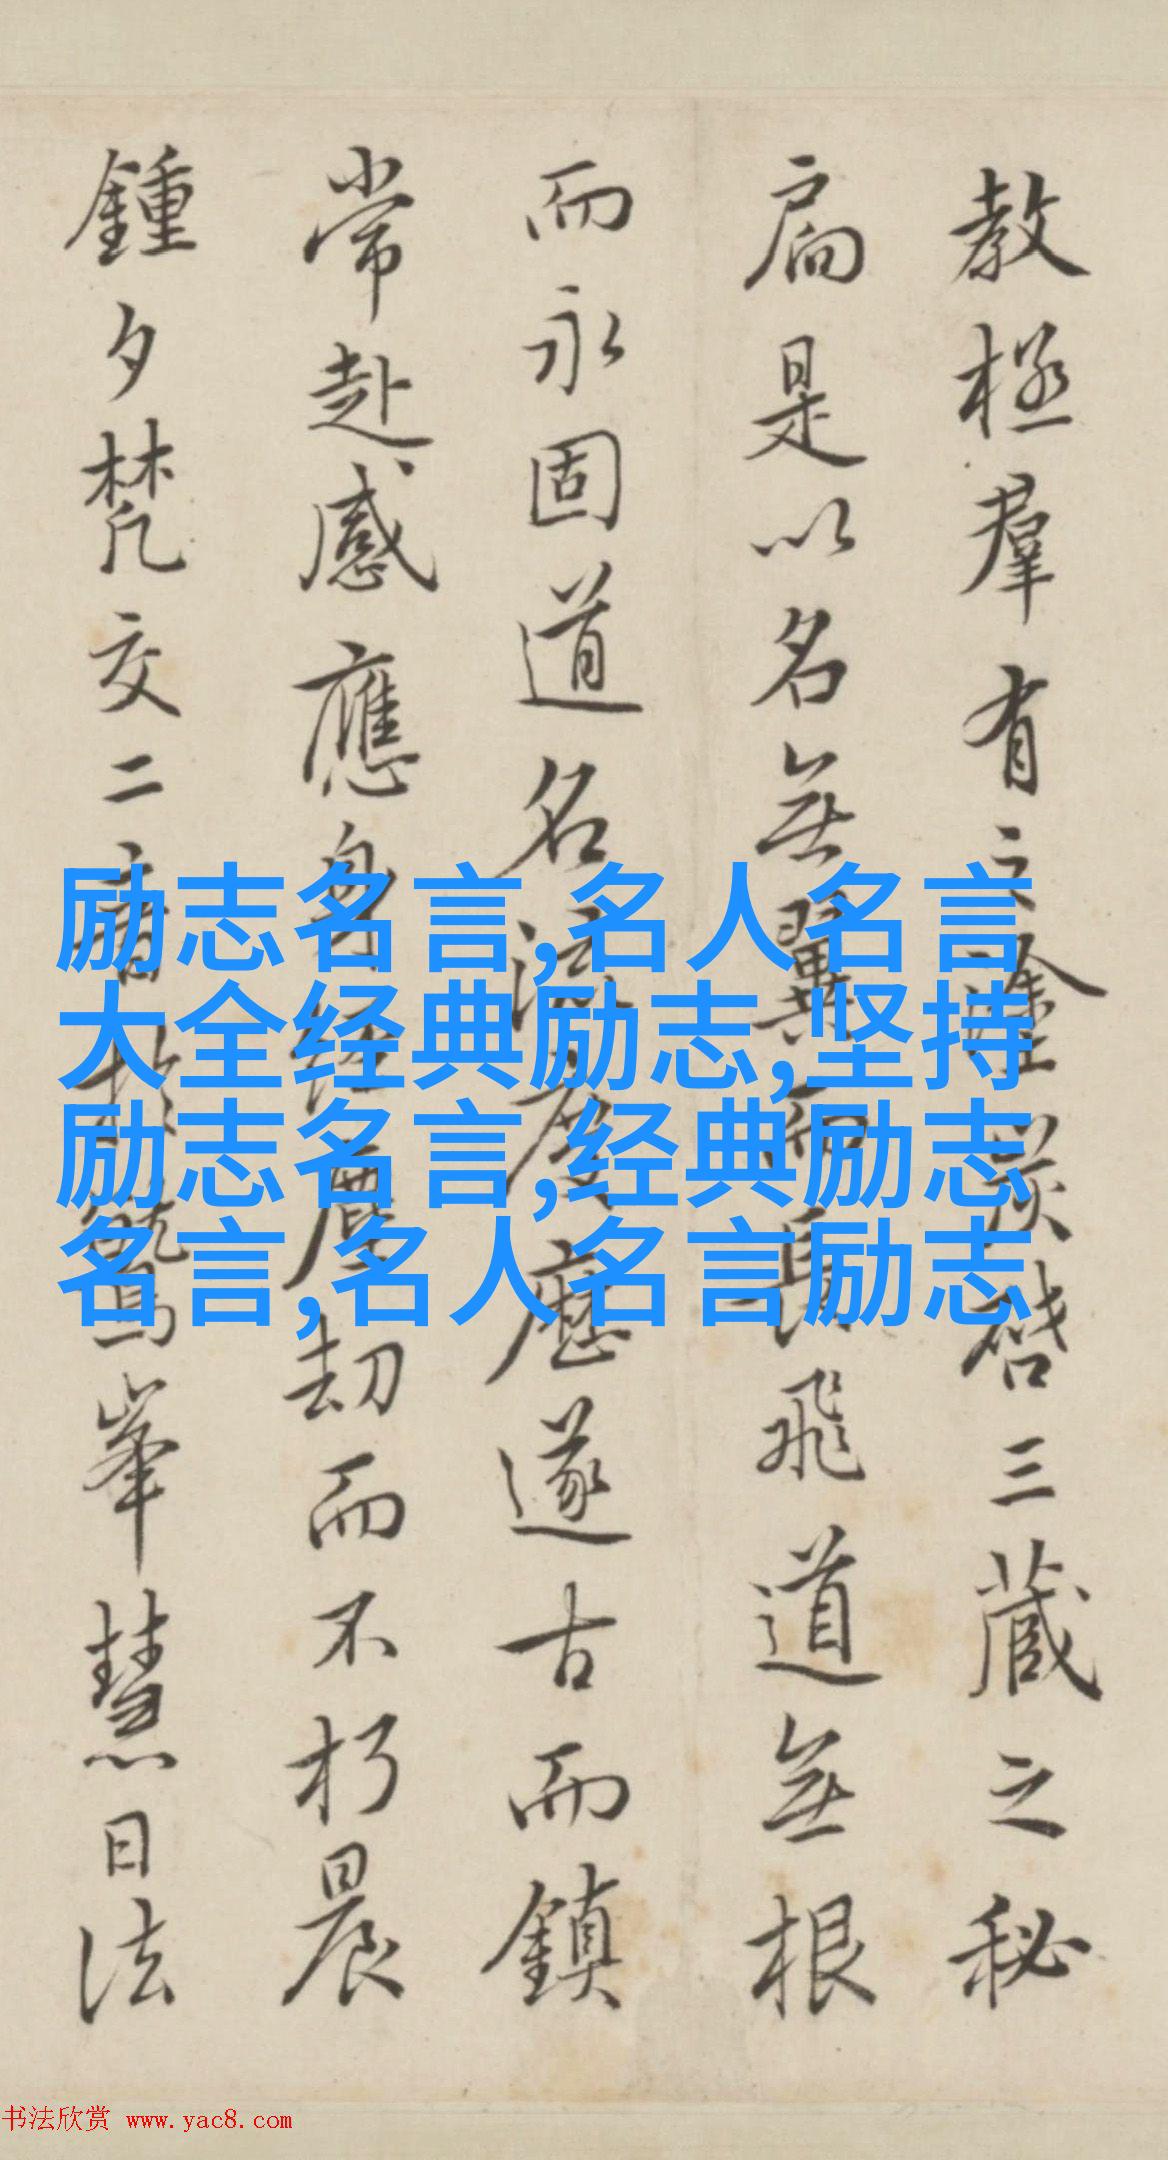 教極羣有之塗炭啓三藏之秘
扃是以名無翼而長飛道無根
而永固道名流慶歷遂古而鎮
常赴感應身經塵劫而不朽晨
鍾夕梵交二音於鷲峯慧日法
励志名言,名人名言
大全经典励志,坚持
励志名言,经典励志
名言,名人名言励志
书法欣赏 www.yac8.com